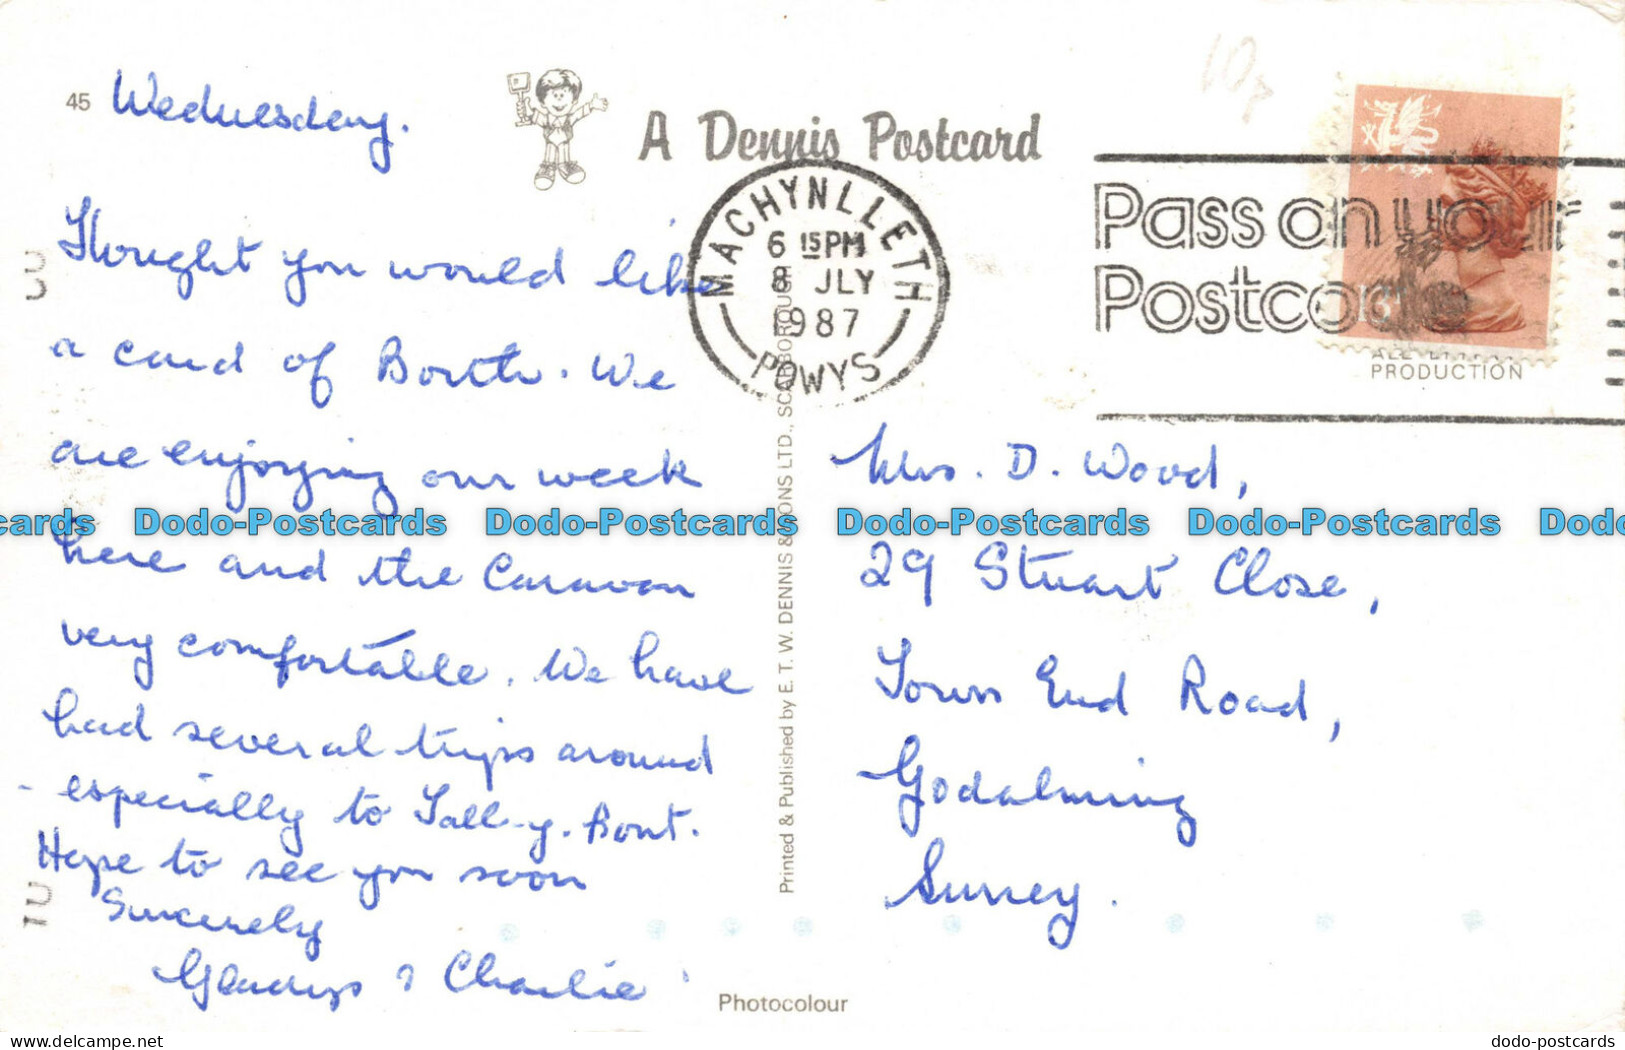 45 Wednesday.
A Dennis Postcard
Thought you would like
a card of Borth. We
are enjoying our week
here and the Caravan
very comfortable. We have
had several trips around
- especially to Tall-y-Bont.
Hope to see you soon
Sincerely
Gladys & Charlie
MACHYNLLETH
6 15PM
8 JLY
1987
POWYS
Pass on your
Postcode
13
PRODUCTION
Mrs. D. Wood,
29 Stuart Close,
Town End Road,
Godalming
Surrey.
Printed & Published by E. T. W. DENNIS & SONS LTD., SCARBOROUGH
Photocolour
10p
cards Dodo-Postcards Dodo-Postcards Dodo-Postcards Dodo-Postcards Dodo
www.delcampe.net
dodo-postcards